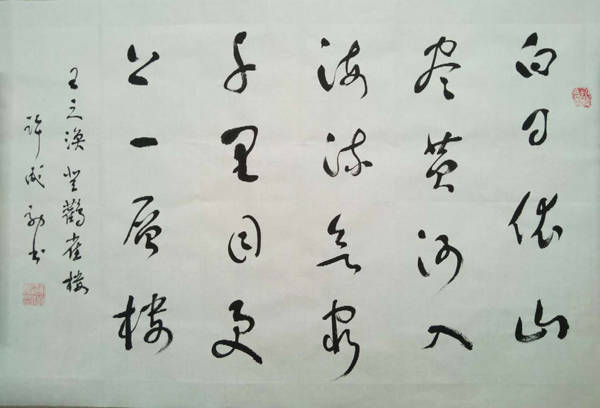 白日依山
尽黄河入
海流欲穷
千里目更
上一层楼
王之涣登鹳雀楼
许成书